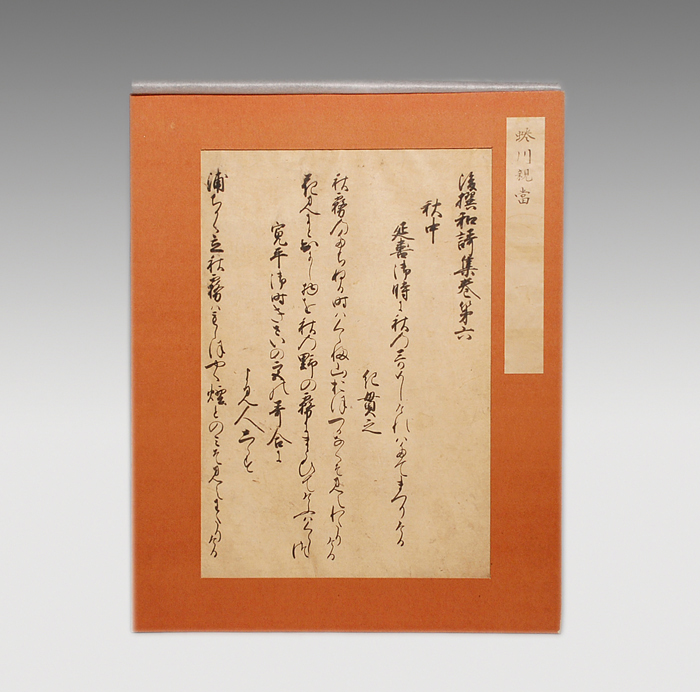 蜷川親當
後撰和謌集巻第六
秋中
延喜御時に秋のうためしけれはたてまつりける
紀貫之
秋霧のたちぬる時はくらふ山おほつかなくそ見えわたりける
花見にと出にし物を秋の野の霧にまよひてけふはくらしつ
寛平御時きさいの宮の哥合に
よみ人しらす
浦ちかく立秋霧はもしほやく煙とのみそ見えわたりける